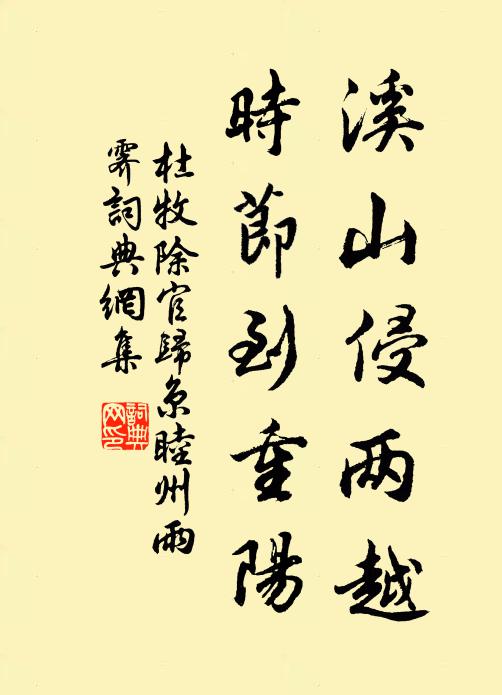 溪山侵两越
時節到重陽
杜牧除官歸京睦州雨
霽詞典網集
詞典
网印